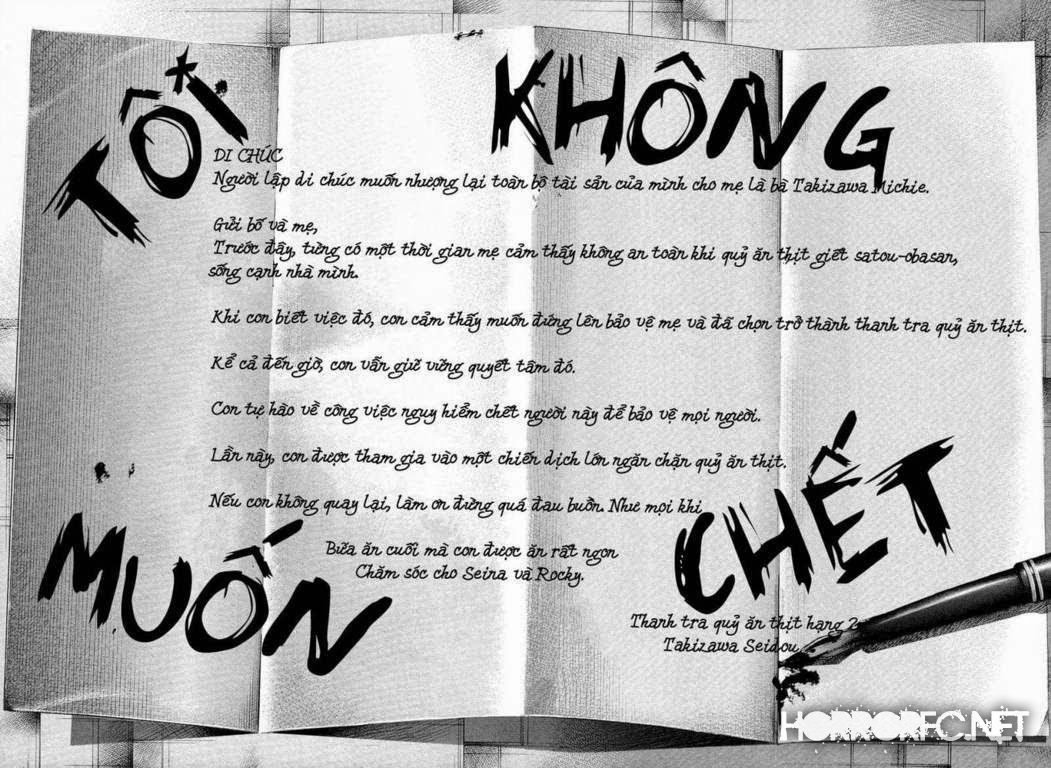 TÔI
KHÔNG
DI CHÚC
Người lập di chúc muốn nhượng lại toàn bộ tài sản của mình cho mẹ là bà Takizawa Michie.
Gửi bố và mẹ,
Trước đây, từng có một thời gian mẹ cảm thấy không an toàn khi quỷ ăn thịt giết satou-obasan,
sống cạnh nhà mình.
Khi con biết việc đó, con cảm thấy muốn đứng lên bảo vệ mẹ và đã chọn trở thành thanh tra quỷ ăn thịt.
Kể cả đến giờ, con vẫn giữ vững quyết tâm đó.
Con tự hào về công việc nguy hiểm chết người này để bảo vệ mọi người.
Lần này, con được tham gia vào một chiến dịch lớn ngăn chặn quỷ ăn thịt.
Nếu con không quay lại, làm ơn đừng quá đau buồn. Như mọi khi
MUỐN
CHẾT
Bữa ăn cuối mà con được ăn rất ngon
Chăm sóc cho Seina và Rocky.
Thanh tra quỷ ăn thịt hạng 2
Takizawa Seidou
HORRORFC.NET